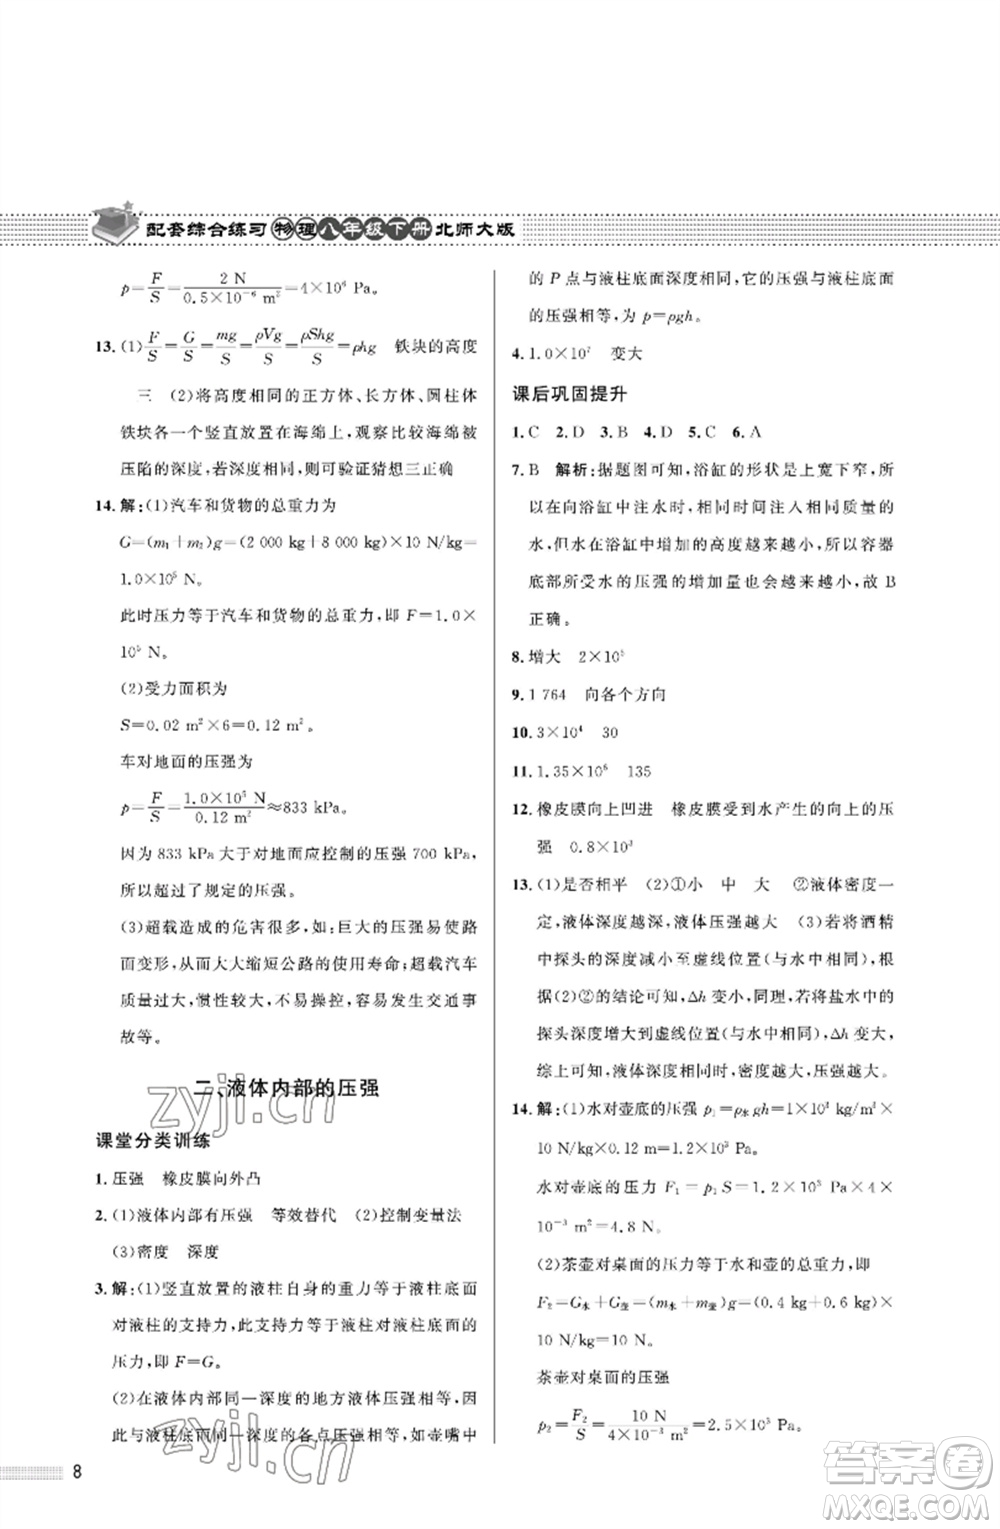 配套综合练习 物理 八年级 下册 北师大版
p=F/S=2 N/(0.5×10⁻⁶ m²)=4×10⁶ Pa。
13.(1)F/S=G/S=mg/S=ρVg/S=ρShg/S=ρhg 铁块的高度
三 (2)将高度相同的正方体、长方体、圆柱体
铁块各一个竖直放置在海绵上,观察比较海绵受
压陷的深度,若深度相同,则可验证猜想三正确
14.解:(1)汽车和货物的总重力为
G=(m₁+m₂)g=(2 000 kg+8 000 kg)×10 N/kg=
1.0×10⁵ N。
此时压力等于汽车和货物的总重力,即 F=1.0×
10⁵ N。
(2)受力面积为
S=0.02 m²×6=0.12 m²。
车对地面的压强为
p=F/S=1.0×10⁵ N/0.12 m²≈833 kPa。
因为 833 kPa 大于对地面应控制的压强 700 kPa,
所以超过了规定的压强。
(3)超载造成的危害很多,如:巨大的压强易使路
面变形,从而大大缩短公路的使用寿命;超载汽车
质量过大,惯性较大,不易操控,容易发生交通事
故等。
二、液体内部的压强
课堂分类训练
1.压强 橡皮膜向外凸
2.(1)液体内部有压强 等效替代 (2)控制变量法
(3)密度 深度
3.解:(1)竖直放置的液柱自身的重力等于液柱底面
对液柱的支持力,此支持力等于液柱对底面的
压力,即 F=G。
(2)在液体内部同一深度的地方液体压强相等,
与液柱底面在同一深度的各点压强相等,如壶嘴中
8
的 P 点与液柱底面深度相同,它的压强与液柱底面
的压强相等,为 p=ρgh。
4.1.0×10⁷ 变大
课后巩固提升
1.C 2.D 3.B 4.D 5.C 6.A
7.B 解析:据题图可知,浴缸的形状是上宽下窄,所
以在向浴缸中注水时,相同时间注入相同体积的
水,但水在浴缸中增加的高度越来越小,所以容器
底部所受水的压强的增加量也会越来越小,故 B
正确。
8.增大 2×10⁵
9.1 764 向各个方向
10.3×10⁴ 30
11.1.35×10⁶ 135
12.橡皮膜向上凹进 橡皮膜受到水产生的向上的压
强 0.8×10³
13.(1)是否相平 (2)①小 中 大 ②液体密度一
定,液体深度越深,液体压强越大 (3)若将酒精
中探头的深度减小至虚线位置(与水中相同),根
据(2)②的结论可知,Δh 变小,同理,若将盐水中的
探头深度增大到虚线位置(与水中相同),Δh 变大,
综上可知,液体深度相同时,密度越大,压强越大。
14.解:(1)水对壶底的压强 p₁=ρ水gh=1×10³ kg/m³×
10 N/kg×0.12 m=1.2×10³ Pa。
水对壶底的压力 F₁=p₁S=1.2×10³ Pa×4×
10⁻³ m²=4.8 N。
(2)茶壶对桌面的压力等于水和壶的总重力,即
F₂=G水+G壶=(m水+m壶)g=(0.4 kg+0.6 kg)×
10 N/kg=10 N。
茶壶对桌面的压强
p₂=F₂/S=10 N/(4×10⁻³ m²)=2.5×10³ Pa。
zyjl.cn
zyjl.cn
答案圈
MXQE.COM